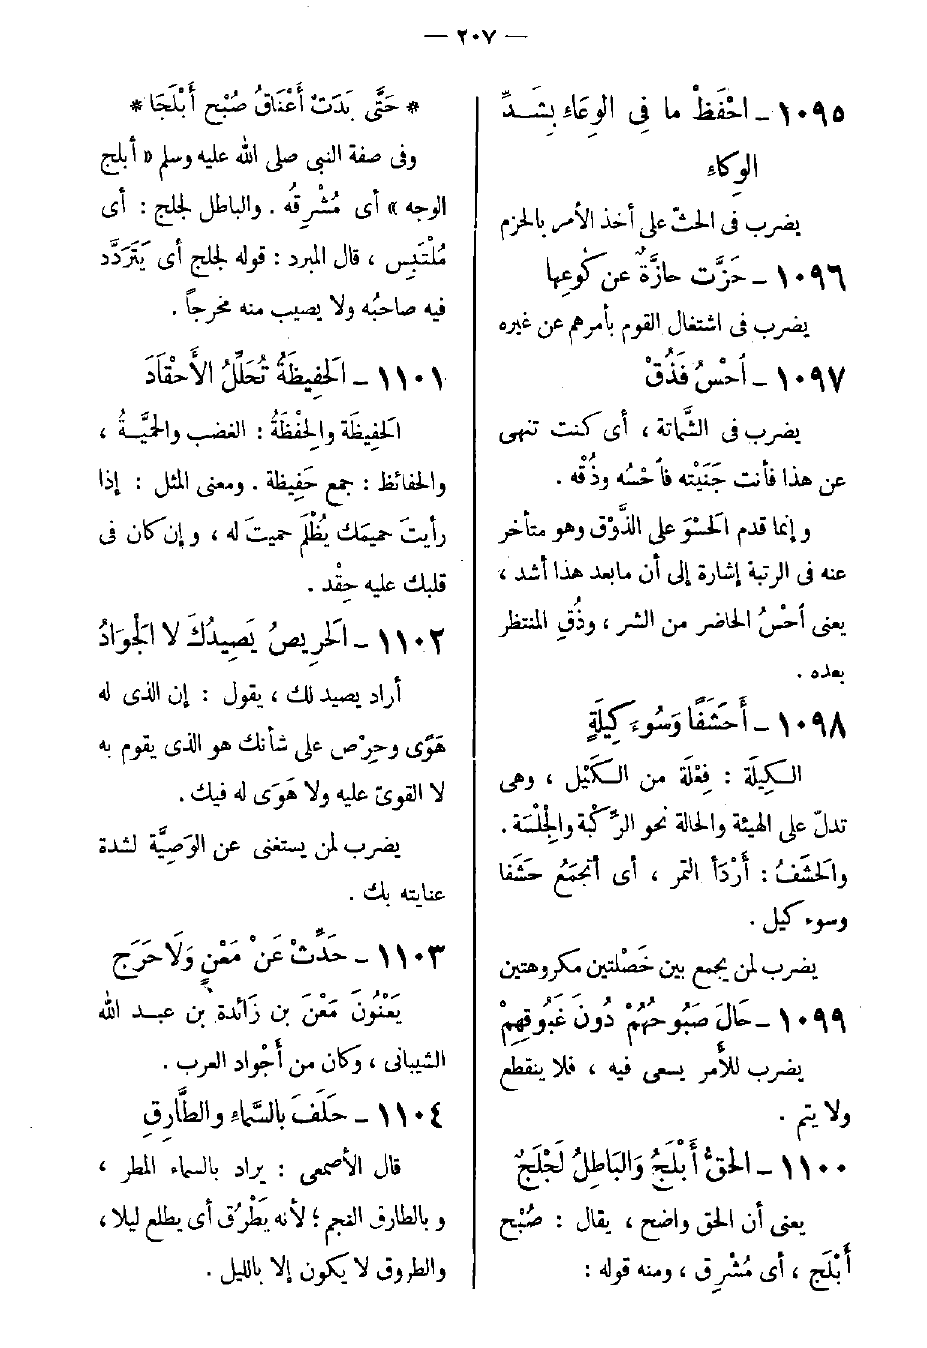 — ٢٠٧ —
١٠٩٥ – احْفَظْ ما فى الوِعَاءِ بِشَدِّ
الوِكاءِ
يضرب فى الحثّ على أخذ الأمر بالحزم
١٠٩٦ – حَزَّت حازَّةٌ عن كُوعِها
يضرب فى اشتغال القوم بأمرهم عن غيره
١٠٩٧ – أحْسُ فَذُقْ
يضرب فى الشَّماتة ، أى كنت تنهى
عن هذا فأنت جَنَيْته فاحْسُه وذُقْه .
وإنما قدم الحَسْوَ على الذَّوْق وهو متأخر
عنه فى الرتبة إشارة إلى أن مابعد هذا أشد ،
يعنى أحْسُ الحاضر من الشر ، وذُقِ المنتظر
بعده .
١٠٩٨ – أَحَشَفًا وَسُوءَ كِيلَةٍ
الكِيلَة : فِعْلَة من الكَيْل ، وهى
تدلّ على الهيئة والحالة نحو الرِّكْبة والجِلْسَة .
والحَشَفُ : أَرْدَأ التمر ، أى أتجمَعُ حَشَفا
وسوء كيل .
يضرب لمن يجمع بين خَصْلتين مكروهتين
١٠٩٩ – حَالَ صَبُوحُهُمْ دُونَ غَبُوقِهِمْ
يضرب للأمر يسعى فيه ، فلا ينقطع
ولا يتم .
١١٠٠ – الحَقُّ أَبْلَجُ وَالبَاطِلُ لَجْلَجٌ
يعنى أن الحق واضح ، يقال : صُبْح
أَبْلَج ، أى مُشْرِق ، ومنه قوله :
* حَتَّى بَدَتْ أَعْنَاقُ صُبْحٍ أَبْلَجَا *
وفى صفة النبى صلى الله عليه وسلم « أبلج
الوجه » أى مُشْرِقُه . والباطل لجلج : أى
مُلْتَبِس ، قال المبرد : قوله لجلج أى يَتَرَدَّد
فيه صاحبُه ولا يصيب منه مخرجاً .
١١٠١ – الحَفِيظَةُ تُحَلِّلُ الأَحْقَادَ
الحَفِيظَة والحِفْظَةُ : الغضب والحميَّةُ ،
والحفائظ : جمع حَفِيظة . ومعنى المثل : إذا
رأيتَ حميمَك يُظْلَم حميتَ له ، وإن كان فى
قلبك عليه حِقْد .
١١٠٢ – الحَرِيصُ يَصِيدُكَ لا الجَوَادُ
أراد يصيد لك ، يقول : إن الذى له
هَوًى وحِرْص على شأنك هو الذى يقوم به
لا القوىّ عليه ولا هَوَى له فيك .
يضرب لمن يستغنى عن الوَصِيَّة لشدة
عنايته بك .
١١٠٣ – حَدِّثْ عَنْ مَعْنٍ وَلَا حَرَج
يَعْنُونَ مَعْنَ بن زَائدة بن عبد الله
الشيبانى ، وكان من أَجْواد العرب .
١١٠٤ – حَلَفَ بالسَّماءِ والطَّارِقِ
قال الأصمعى : يراد بالسماء المطر ،
وبالطارق النجم ؛ لأنه يَطْرُق أى يطلع ليلا ،
والطروق لا يكون إلا بالليل .